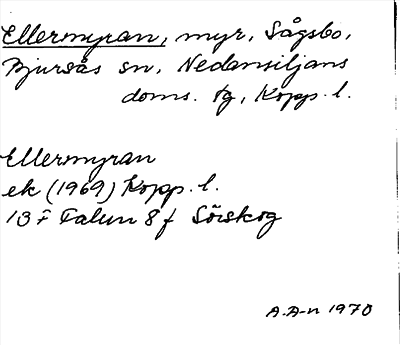 Ellermyran, myr, Sågsbo,
Bjursås sn, Nedansiljans
doms. tg, Kopp. l.
Ellermyran
ek (1969) Kopp. l.
13 F Falun 8 f Sörskog
A.A-n 1970